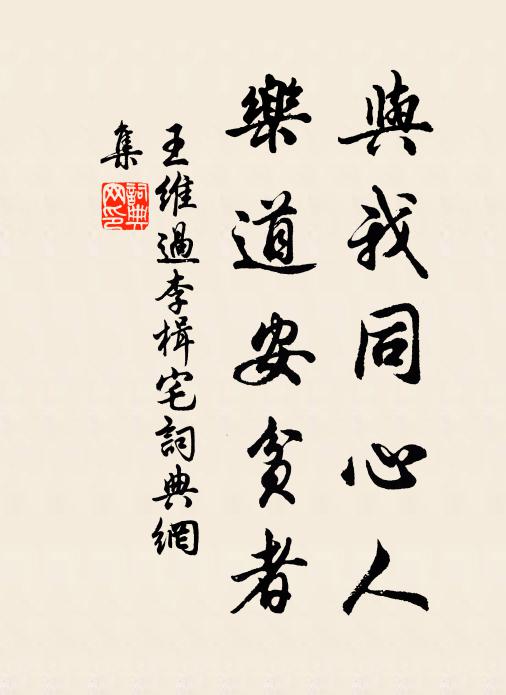 與我同心人
樂道安貧者
王維過李楫宅詞典網
集
詞典
网印